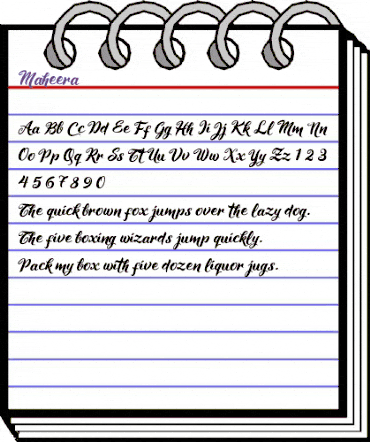 Maheera
Aa Bb Cc Dd Ee Ff Gg Hh Ii Jj Kk Ll Mm Nn
Oo Pp Qq Rr Ss Tt Uu Vv Ww Xx Yy Zz 1 2 3
4 5 6 7 8 9 0
The quick brown fox jumps over the lazy dog.
The five boxing wizards jump quickly.
Pack my box with five dozen liquor jugs.